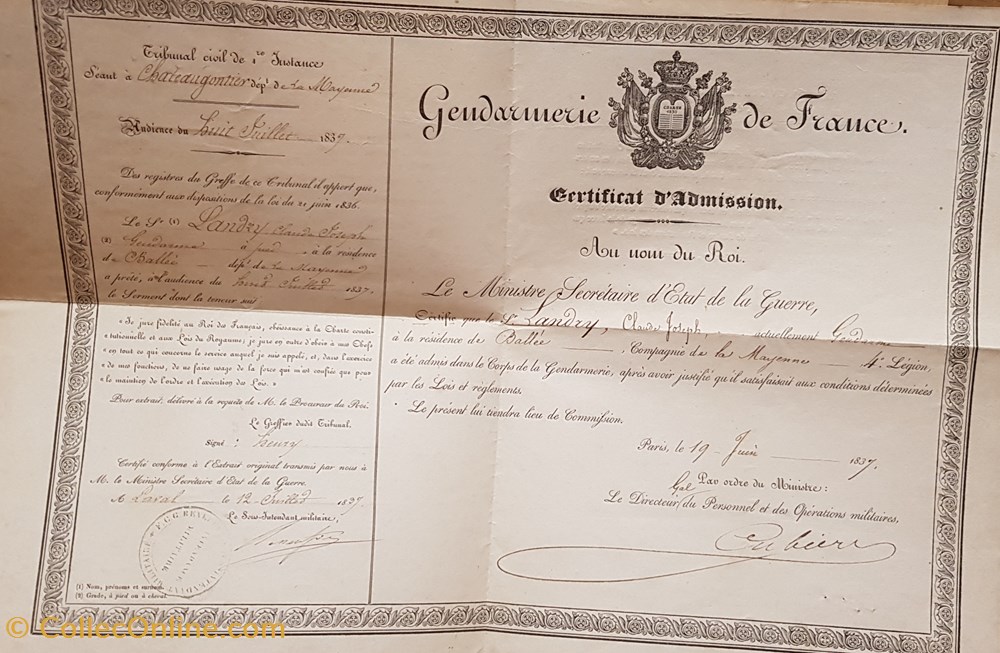 Tribunal civil de 1re Instance
Séant à Chateaugontier dépt de La Mayenne
Audience du huit Juillet 1837.
Des registres du Greffe de ce Tribunal il appert que,
conformément aux dispositions de la loi du 21 juin 1836.
Le Sr (1) Landry Claude Joseph
(2) Gendarme à pied à la résidence
de Ballée dépt de la Mayenne
a prêté, à l'audience du huit Juillet 1837.
le Serment dont la teneur suit
« Je jure fidélité au Roi des Français, obéissance à la Charte consti-
« tutionnelle et aux Lois du Royaume; je jure en outre d'obéir à mes Chefs
« en tout ce qui concerne le service auquel je suis appelé, et, dans l'exercice
« de mes fonctions, de ne faire usage de la force qui m'est confiée que pour
« le maintien de l'ordre et l'exécution des Lois. »
Pour extrait, délivré à la requête de M. le Procureur du Roi.
Le Greffier dudit Tribunal.
Signé :
Certifié conforme à l'Extrait original transmis par nous à
M. le Ministre Secrétaire d'Etat de la Guerre.
A Laval le 12 Juillet 1837
Le Sous-Intendant militaire,
(1) Nom, prénoms et surnom.
(2) Grade, à pied ou à cheval.
Gendarmerie de France.
CHARTE
1830
Certificat d'Admission.
Au nom du Roi.
Le Ministre Secrétaire d'Etat de la Guerre,
Certifie que le Sr Landry, Claude Joseph, actuellement Gendarme
à la résidence de Ballée, Compagnie de la Mayenne 4e Légion,
a été admis dans le Corps de la Gendarmerie, après avoir justifié qu'il satisfaisait aux conditions déterminées
par les Lois et règlements.
Le présent lui tiendra lieu de Commission.
Paris, le 19 Juin 1837.
Par ordre du Ministre:
Le Gal Directeur du Personnel et des Opérations militaires,
Cubières
© CollecOnline.com